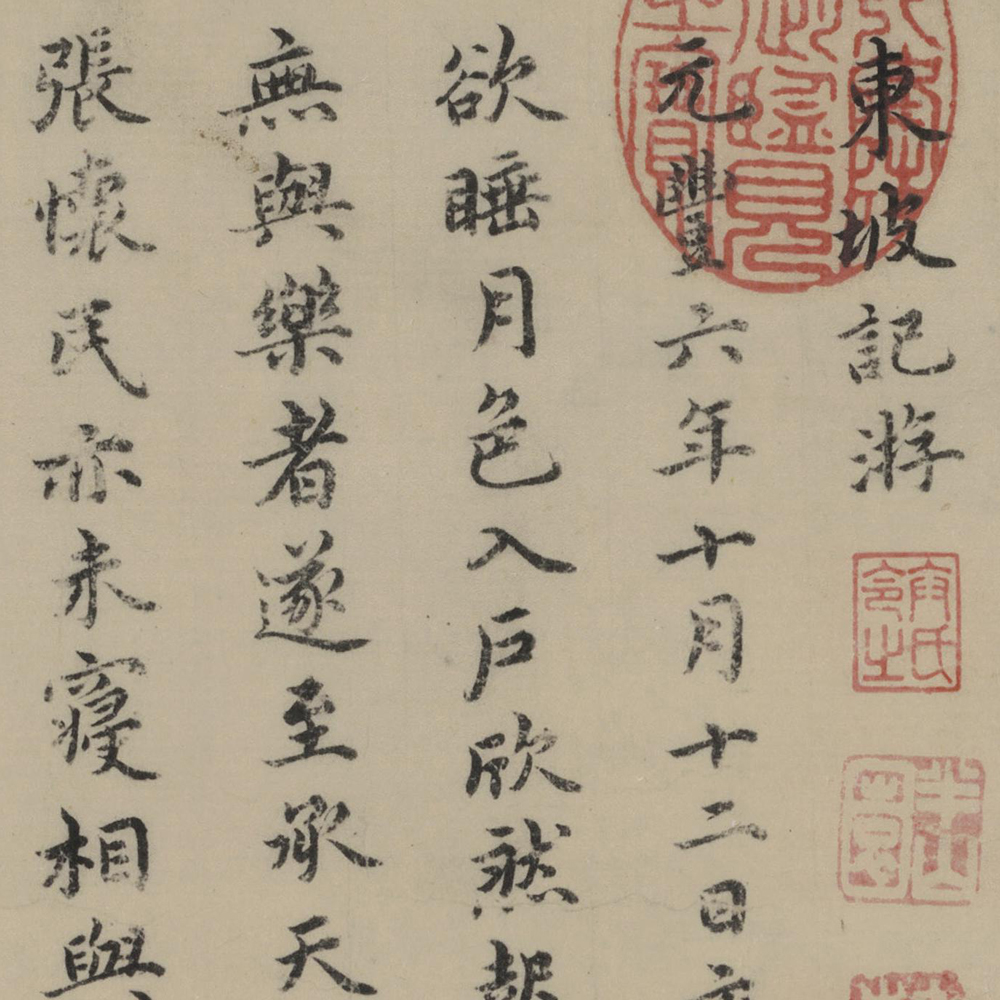 東坡記游
元豐六年十月十二日
欲睡月色入戶欣然起
無與樂者遂至承天
張懷民亦未寢相與